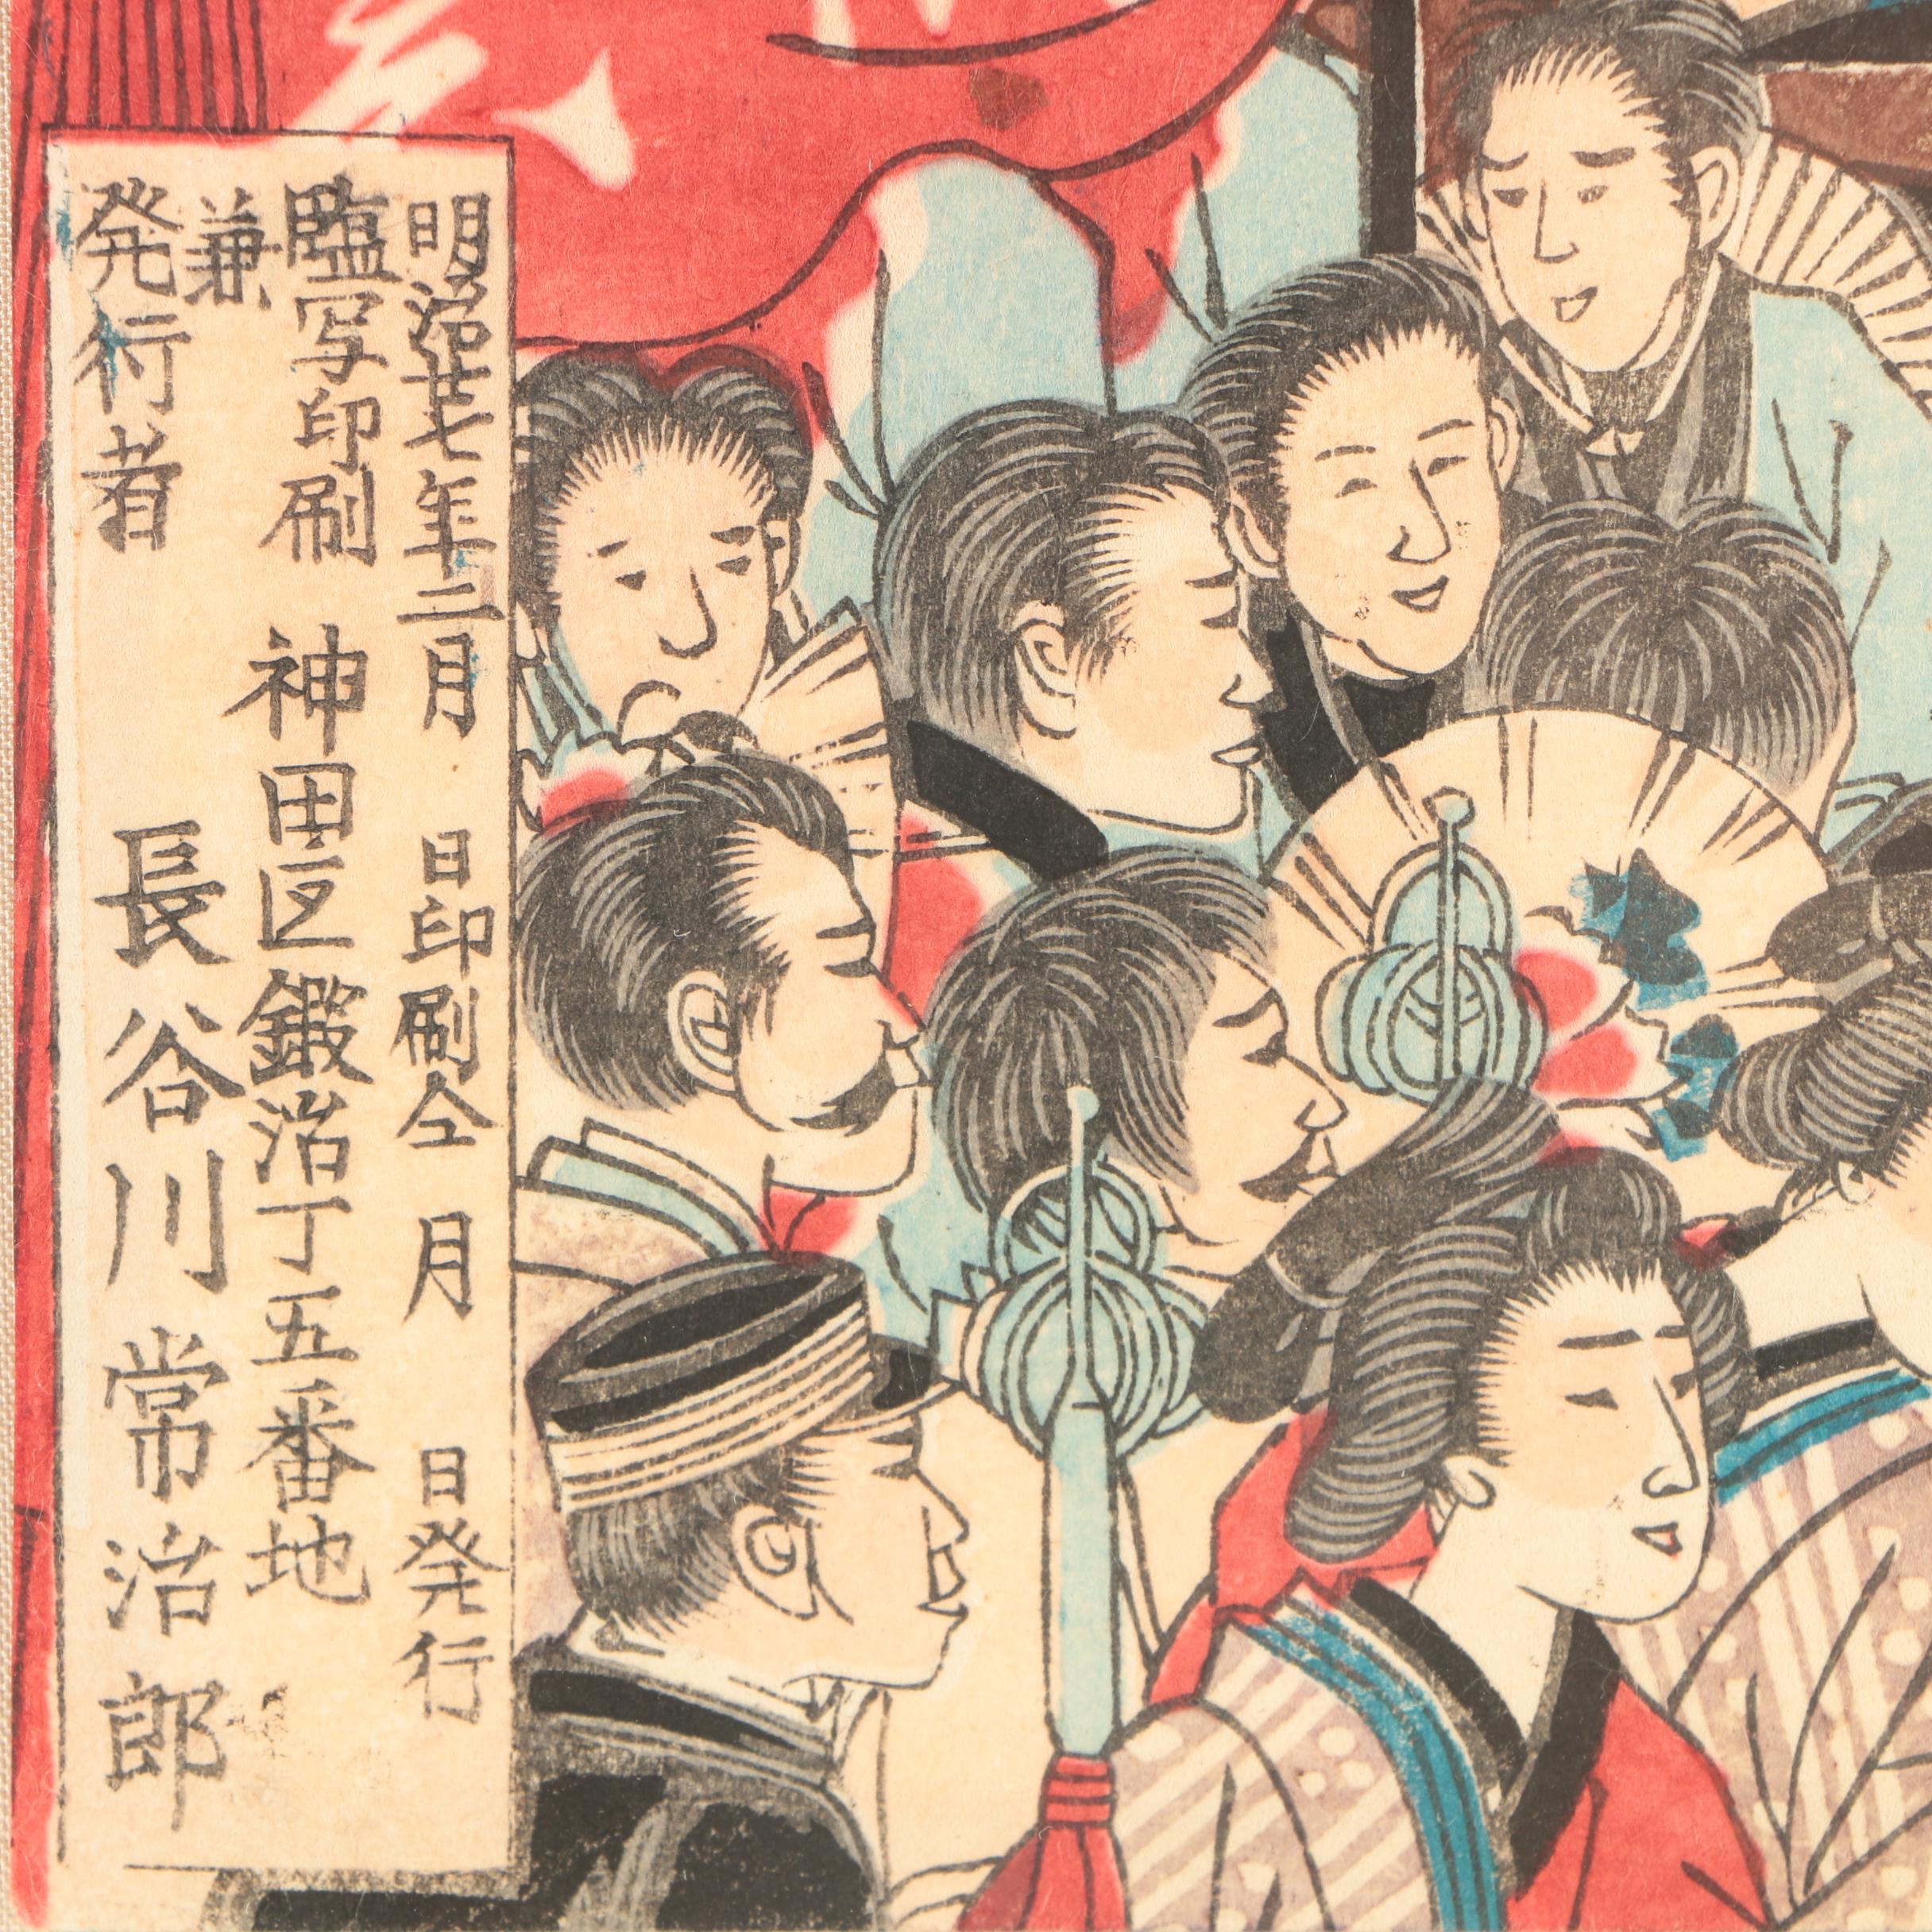 明治廿七年二月　日印刷仝　月　日発行
臨写印刷　神田区鍛治丁五番地
兼
発行者　長谷川常治郎